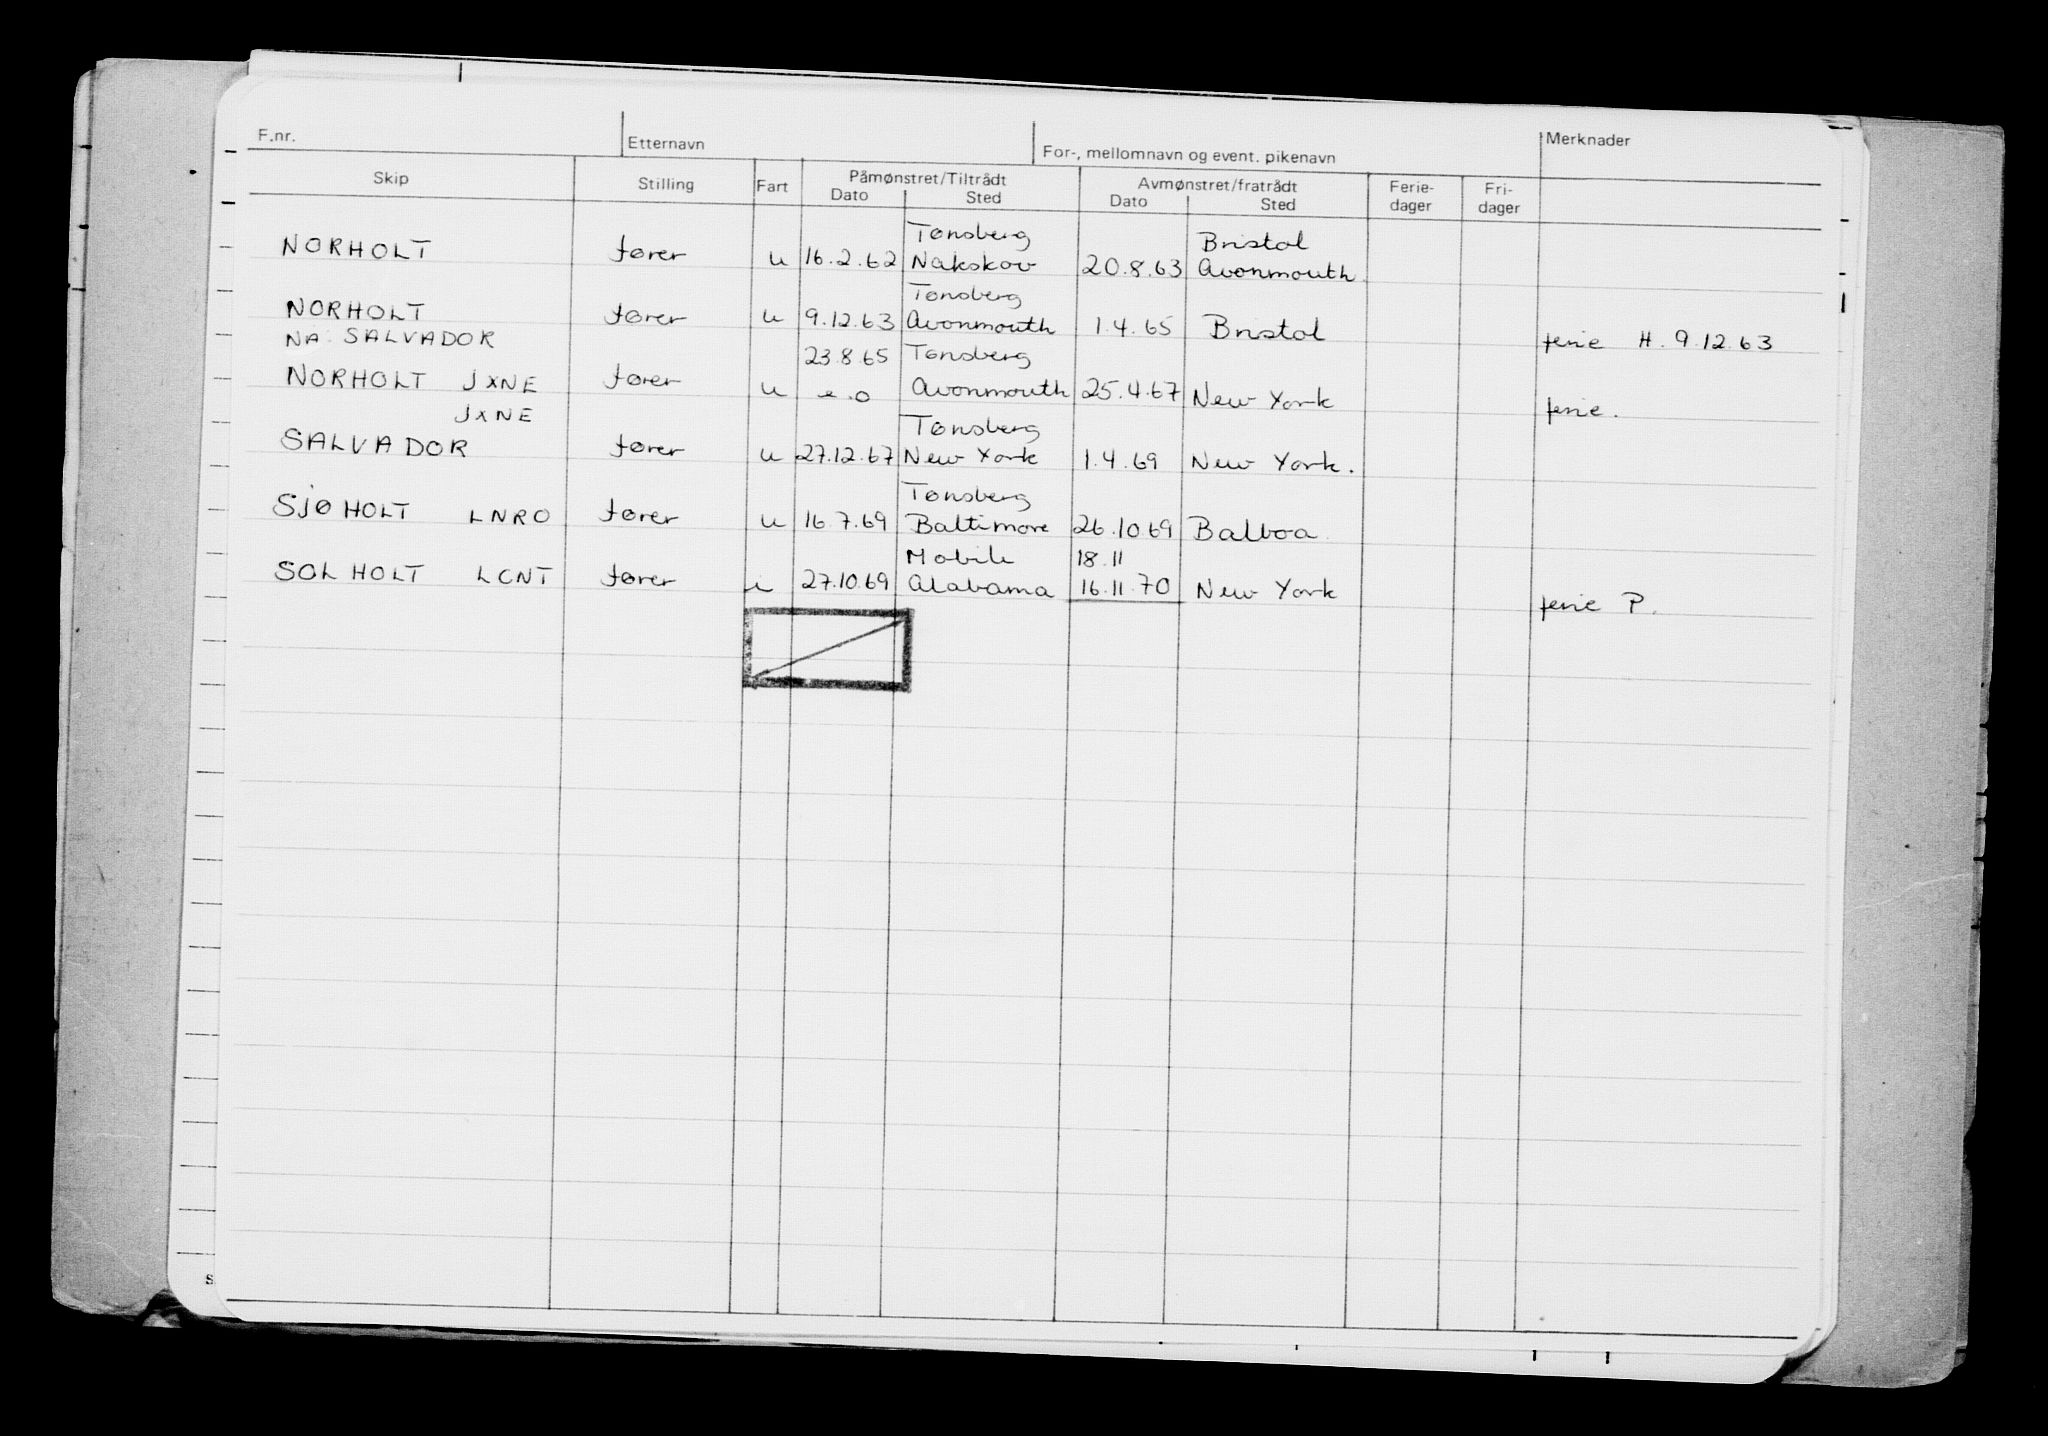 F.nr. Etternavn For-, mellomnavn og event. pikenavn Merknader
Skip Stilling Fart Påmønstret/Tiltrådt Avmønstret/fratrådt Ferie- Fri-
Dato Sted Dato Sted dager dager
Tønsberg Bristol
NORHOLT fører u 16.2.62 Nakskov 20.8.63 Avonmouth
Tønsberg
NORHOLT fører u 9.12.63 Avonmouth 1.4.65 Bristol ferie H. 9.12.63
NA: SALVADOR 23.8.65 Tønsberg
NORHOLT JXNE fører u Avonmouth 25.4.67 New York ferie.
JXNE Tønsberg
SALVADOR fører u 27.12.67 New York 1.4.69 New York.
Tønsberg
SJØHOLT LNRO fører u 16.7.69 Baltimore 26.10.69 Balboa
Mobile 18.11
SOLHOLT LCNT fører 27.10.69 Alabama 16.11.70 New York ferie P.
S